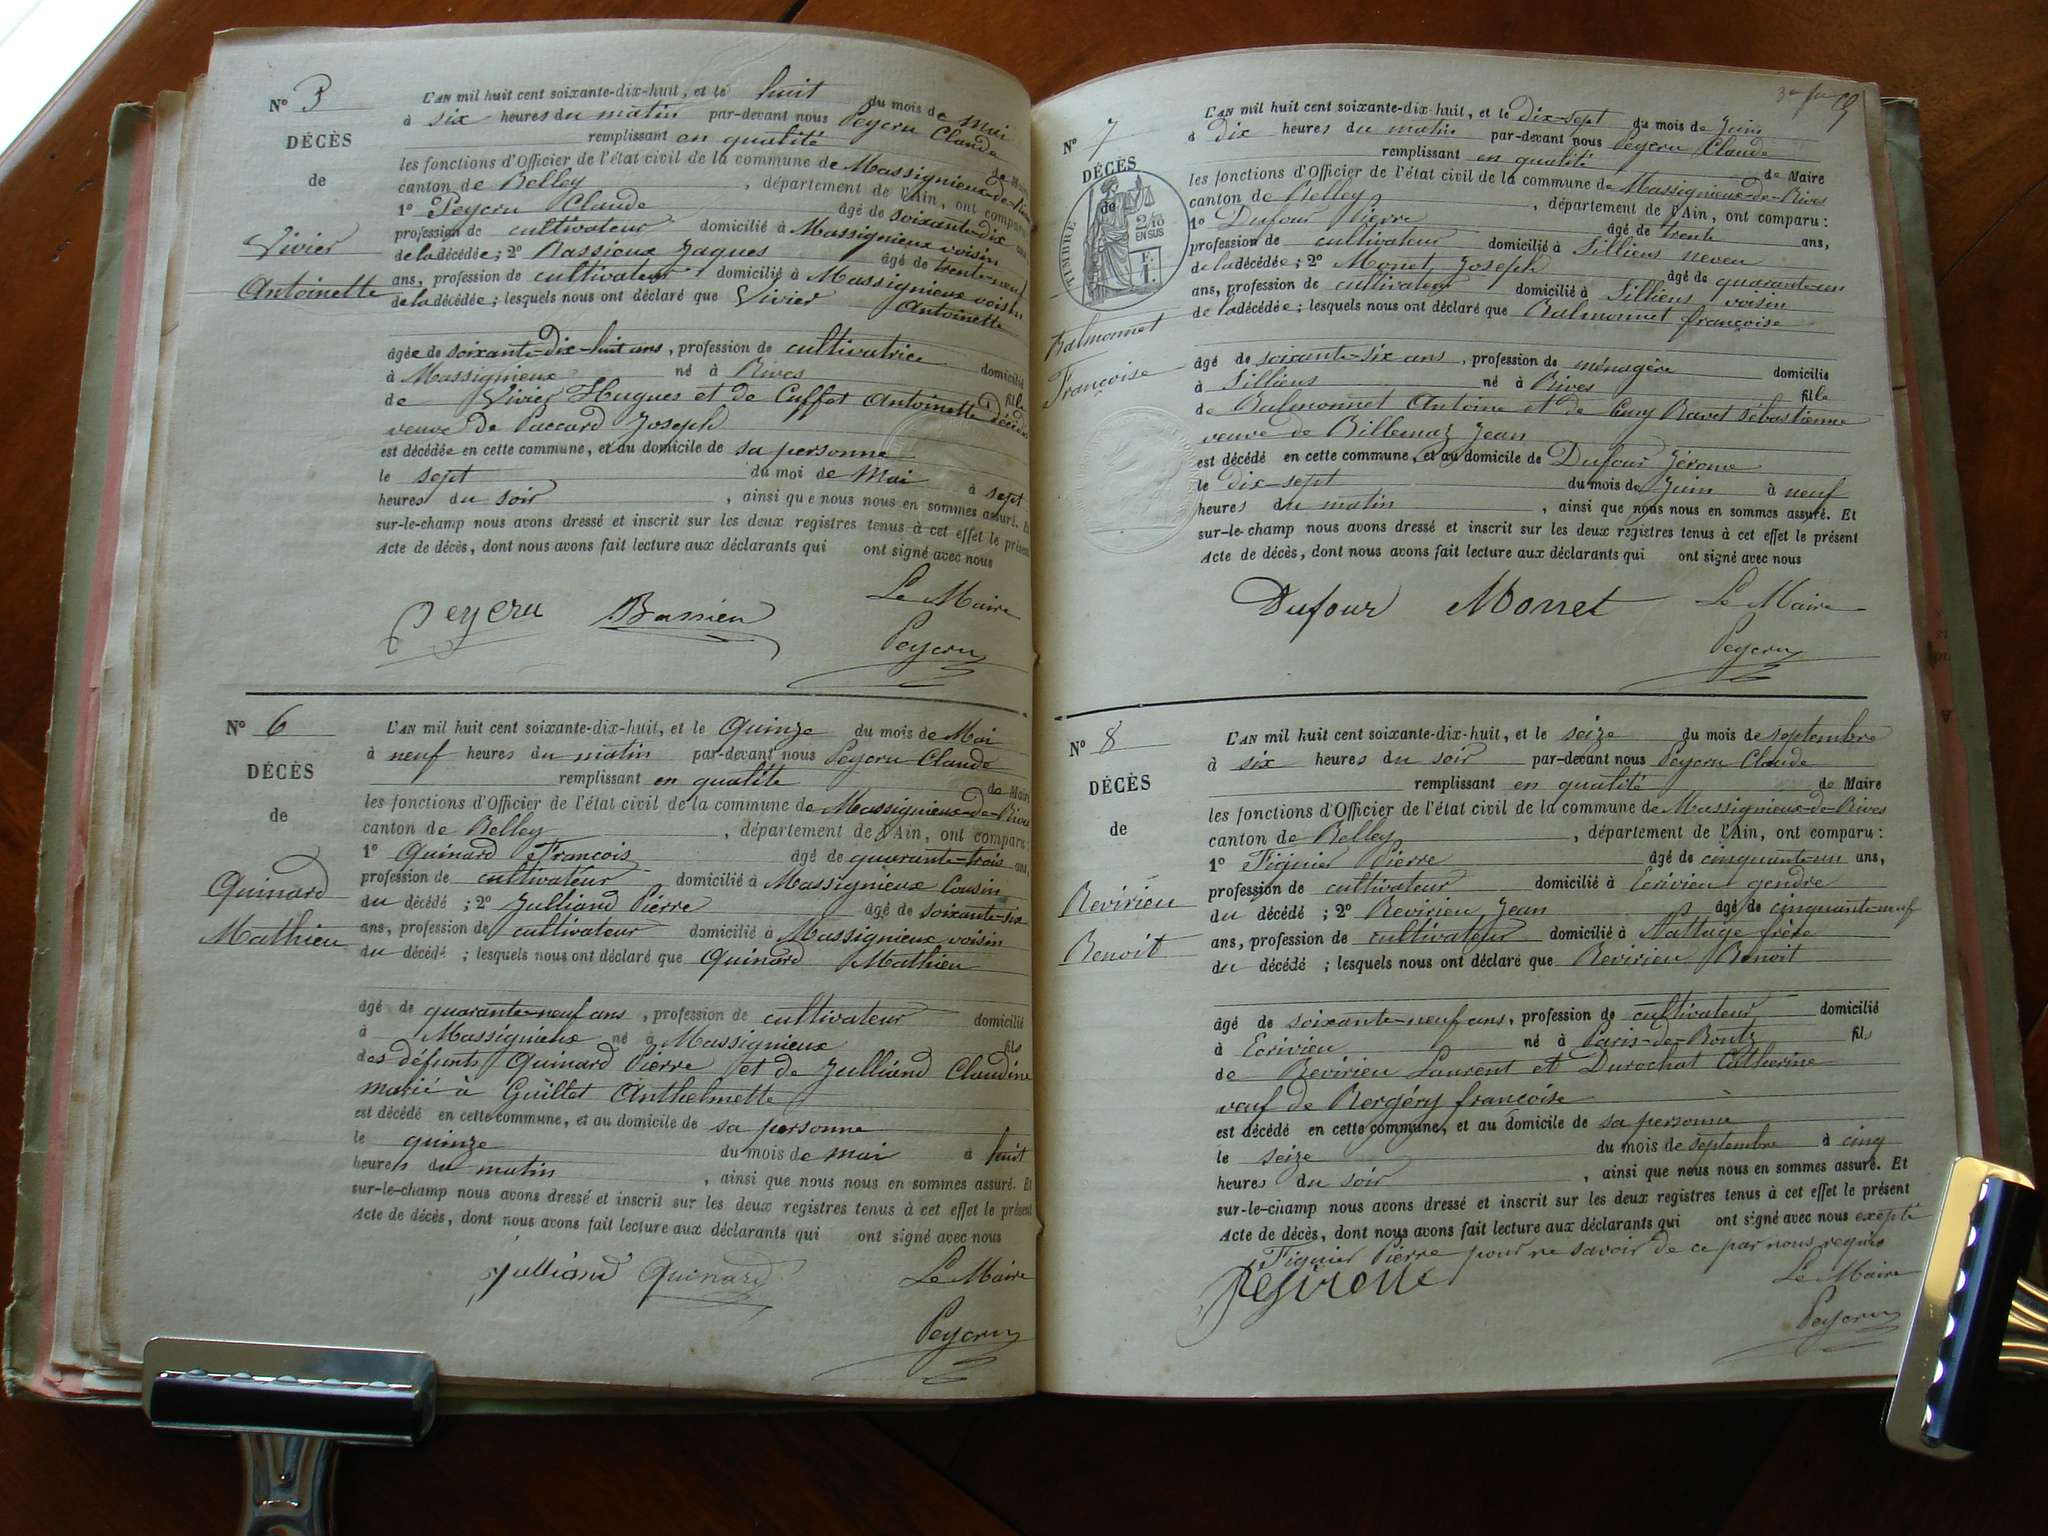 N° 5
DÉCÈS
de
Vivier
Antoinette
L'AN mil huit cent soixante-dix-huit, et le huit du mois de Mai
à six heures du matin par-devant nous Peycru Claude
remplissant en qualité de Maire
les fonctions d'Officier de l'état civil de la commune de Massignieux-de-Rives
canton de Belley, département de l'Ain, ont comparu
1° Peycru Claude âgé de soixante-dix ans
profession de cultivateur domicilié à Massignieux voisin
de la décédée; 2° Bassieux Jaques âgé de trente-neuf
ans, profession de cultivateur domicilié à Massignieux voisin
de la décédée; lesquels nous ont déclaré que Vivier
Antoinette
âgée de soixante-dix-huit ans, profession de cultivatrice domicilié
à Massignieux né à Rives fille
de Vivier Hugues et de Cuffet Antoinette
veuve de Paccard Joseph
est décédée en cette commune, et au domicile de sa personne
le sept du moi de Mai à sept
heures du soir, ainsi que nous nous en sommes assuré. Et
sur-le-champ nous avons dressé et inscrit sur les deux registres tenus à cet effet le présent
Acte de décès, dont nous avons fait lecture aux déclarants qui ont signé avec nous
Le Maire
Peycru Bassieu
Peycru
N° 6
DÉCÈS
de
Quinard
Mathieu
L'AN mil huit cent soixante-dix-huit, et le Quinze du mois de Mai
à neuf heures du matin par-devant nous Peycru Claude
remplissant en qualité de Maire
les fonctions d'Officier de l'état civil de la commune de Massignieux-de-Rives
canton de Belley, département de l'Ain, ont comparu
1° Quinard François âgé de quarante-trois ans,
profession de cultivateur domicilié à Massignieux Cousin
du décédé; 2° Julliand Pierre âgé de soixante-six
ans, profession de cultivateur domicilié à Massignieux voisin
du décédé; lesquels nous ont déclaré que Quinard Mathieu
âgé de quarante-neuf ans, profession de cultivateur domicilié
à Massignieux né à Massignieux fils
des défunts Quinard Pierre et de Julliand Claudine
marié à Guillet Anthelmette
est décédé en cette commune, et au domicile de sa personne
le quinze du mois de mai à huit
heures du matin, ainsi que nous nous en sommes assuré. Et
sur-le-champ nous avons dressé et inscrit sur les deux registres tenus à cet effet le présent
Acte de décès, dont nous avons fait lecture aux déclarants qui ont signé avec nous
Julliand Quinard Le Maire
Peycru
N° 7
DÉCÈS
de
TIMBRE
2/10
EN SUS
Balmonnet
Françoise
L'AN mil huit cent soixante-dix-huit, et le dix-sept du mois de Juin
à dix heures du matin par-devant nous Peycru Claude
remplissant en qualité de Maire
les fonctions d'Officier de l'état civil de la commune de Massignieux-de-Rives
canton de Belley, département de l'Ain, ont comparu:
1° Dufour Pierre âgé de trente ans,
profession de cultivateur domicilié à Silliens neveu
de la décédée; 2° Monet Joseph âgé de quarante-un
ans, profession de cultivateur domicilié à Silliens voisin
de la décédée; lesquels nous ont déclaré que Balmonnet françoise
âgé de soixante-six ans, profession de ménagère domicilié
à Silliens né à Rives fille
de Balmonnet Antoine et de Ravet Sébastienne
veuve de Billemaz Jean
est décédé en cette commune, et au domicile de Dufour Jérome
le dix-sept du mois de Juin à neuf
heures du matin, ainsi que nous nous en sommes assuré. Et
sur-le-champ nous avons dressé et inscrit sur les deux registres tenus à cet effet le présent
Acte de décès, dont nous avons fait lecture aux déclarants qui ont signé avec nous
Dufour Monet Le Maire
Peycru
N° 8
DÉCÈS
de
Revirieu
Benoit
L'AN mil huit cent soixante-dix-huit, et le seize du mois de septembre
à six heures du soir par-devant nous Peycru Claude
remplissant en qualité de Maire
les fonctions d'Officier de l'état civil de la commune de Massignieux-de-Rives
canton de Belley, département de l'Ain, ont comparu:
1° Tignier Pierre âgé de cinquante-un ans,
profession de cultivateur domicilié à Ecrivieu gendre
du décédé; 2° Revirieu Jean âgé de cinquante-neuf
ans, profession de cultivateur domicilié à Nattage frère
du décédé; lesquels nous ont déclaré que Revirieu Benoit
âgé de soixante-neuf ans, profession de cultivateur domicilié
à Ecrivieu né à fils
de Revirieu Laurent et Durochat Catherine
veuf de Bergéry françoise
est décédé en cette commune, et au domicile de sa personne
le seize du mois de septembre à cinq
heures du soir, ainsi que nous nous en sommes assuré. Et
sur-le-champ nous avons dressé et inscrit sur les deux registres tenus à cet effet le présent
Acte de décès, dont nous avons fait lecture aux déclarants qui ont signé avec nous exepté
Tignier Pierre pour ne savoir de ce par nous requis
Le Maire
Peycru